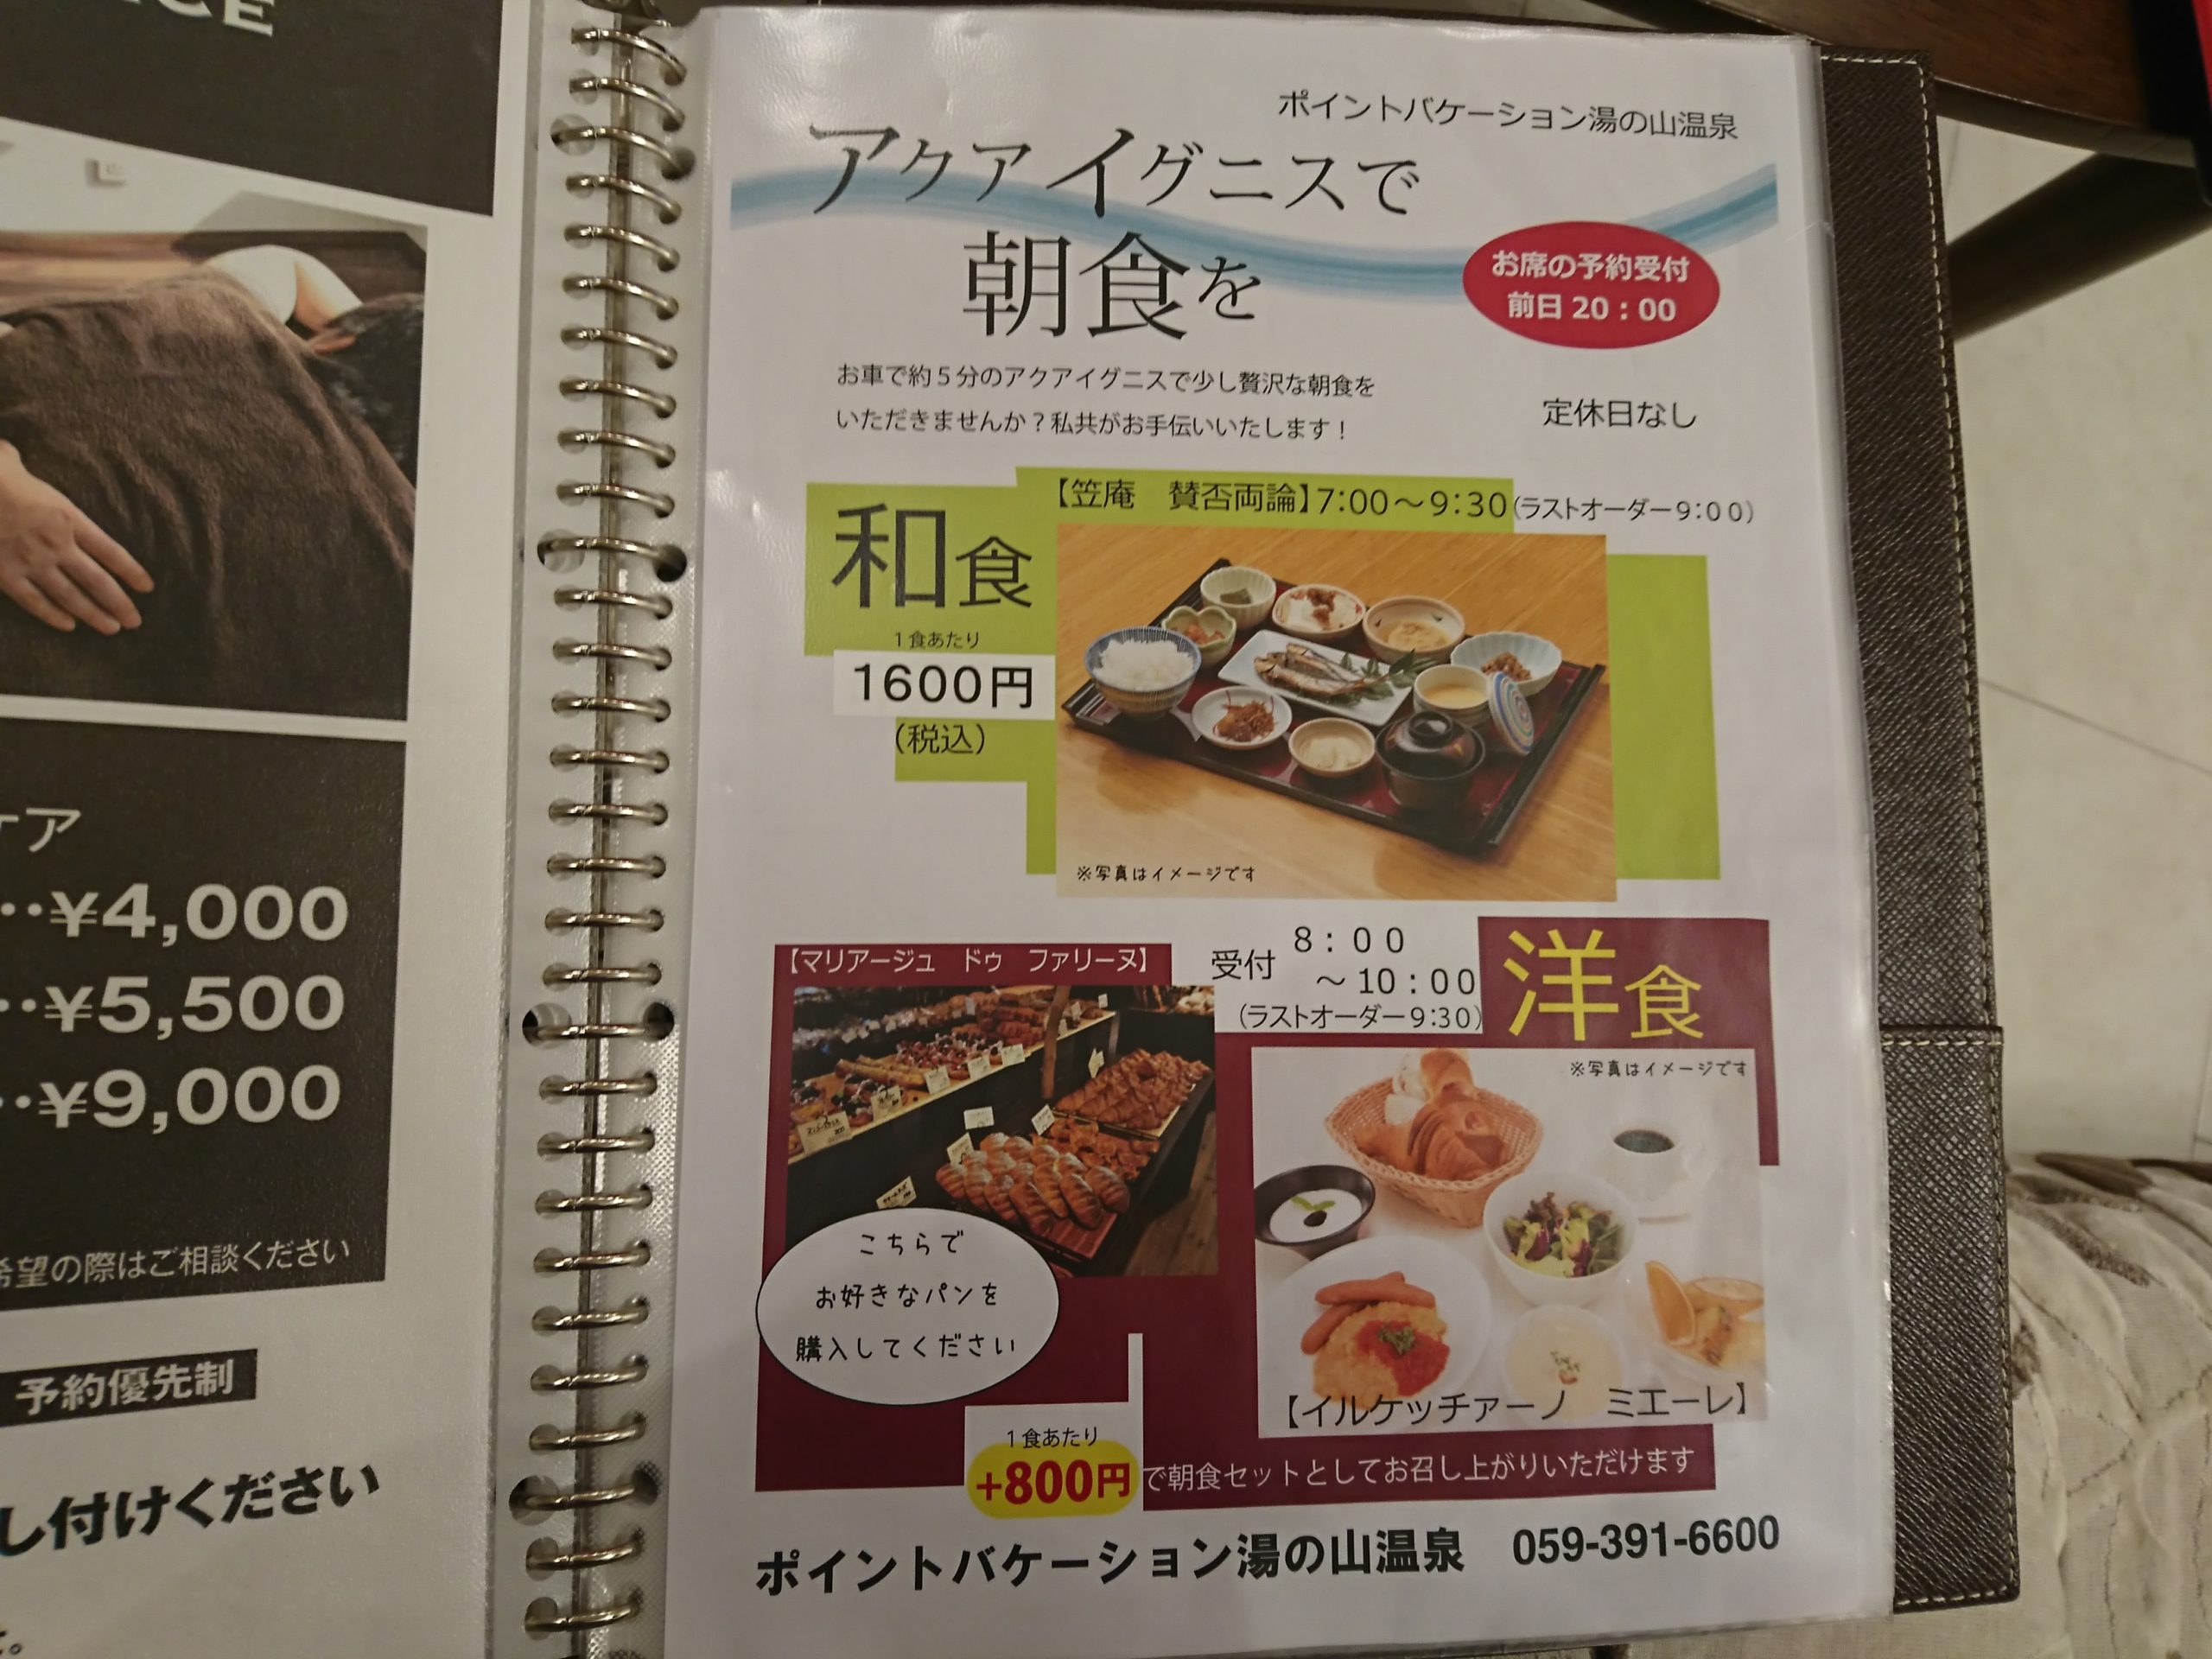 ケア
··¥4,000
··¥5,500
··¥9,000
希望の際はご相談ください
予約優先制
し付けください
ポイントバケーション湯の山温泉
アクアイグニスで
朝食を
お席の予約受付
前日 20：00
お車で約５分のアクアイグニスで少し贅沢な朝食を
いただきませんか？私共がお手伝いいたします！
定休日なし
【笠庵　賛否両論】7:00～9:30(ラストオーダー9:00)
和食
１食あたり
1600円
(税込)
※写真はイメージです
【マリアージュ　ドゥ　ファリーヌ】
受付
8：00
～10：00
(ラストオーダー9:30)
洋食
※写真はイメージです
こちらで
お好きなパンを
購入してください
【イルケッチァーノ　ミエーレ】
１食あたり
+800円で朝食セットとしてお召し上がりいただけます
ポイントバケーション湯の山温泉　059-391-6600